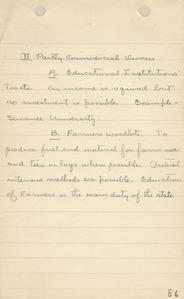 II Partly Commercial Owners
A. Educational Institutions'
Tracts. An income is required but
no investment is possible. Example-
Sewanee University.
B. Farmers Woodlots. To
produce fuel and material for farm use
and ties or logs when possible.
intensive methods are possible. Education
of Farmers is the main duty of the state
86